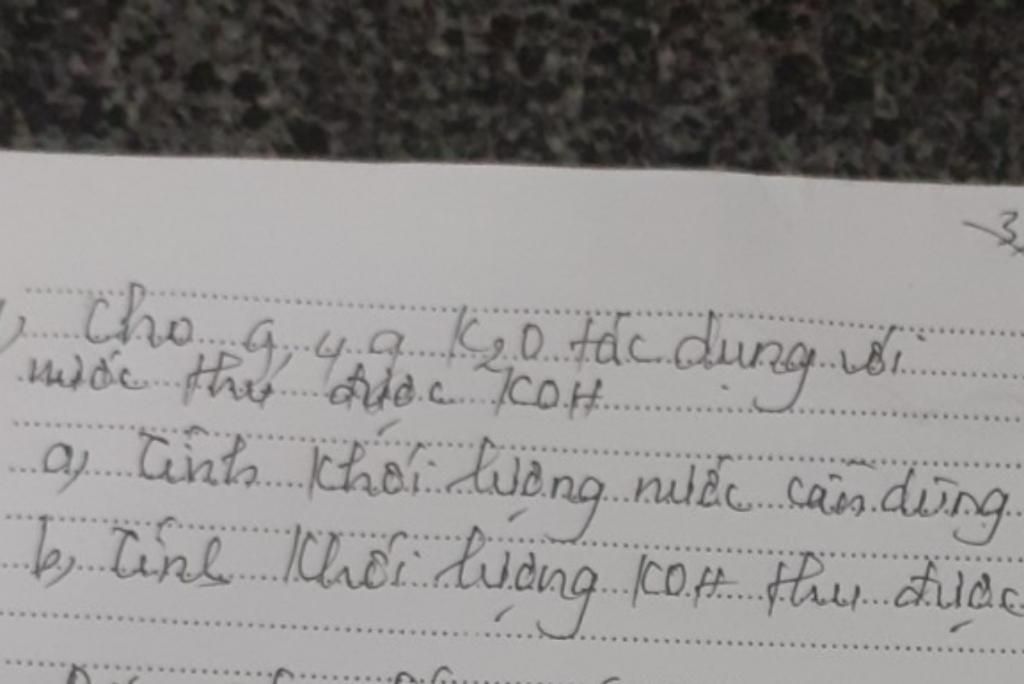 3
1, Cho 9,4 g K₂O tác dụng với
nước thu được KOH
a) Tính khối lượng nước cần dùng
b, Tính khối lượng KOH thu được